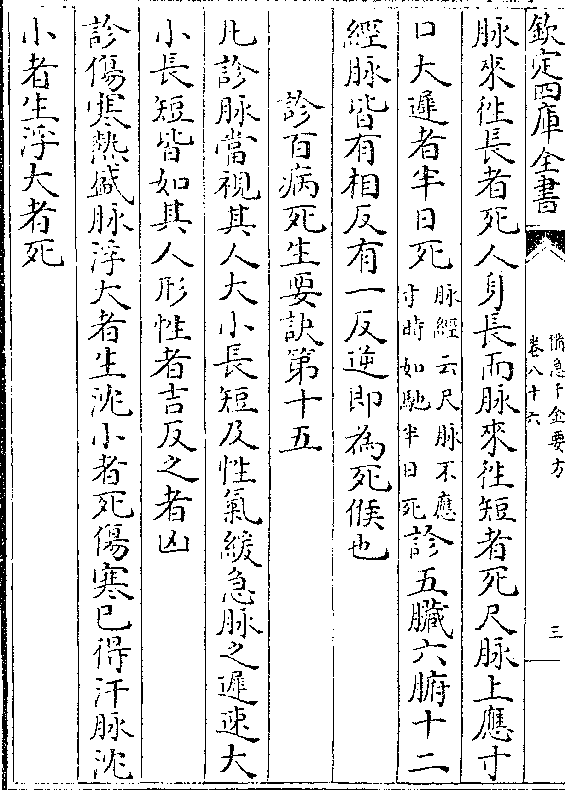 欽定四庫全書
備急千金要方
卷八十六
三
脉來徃長者死人身長而脉來徃短者死尺脉上應寸
口大遲者半日死
脉經云尺脉不應
寸時如馳半日死
診五臟六腑十二
經脉皆有相反有一反逆即為死候也
診百病死生要訣第十五
凡診脉當視其人大小長短及性氣緩急脉之遲速大
小長短皆如其人形性者吉反之者凶
診傷寒熱盛脉浮大者生沈小者死傷寒已得汗脉沈
小者生浮大者死